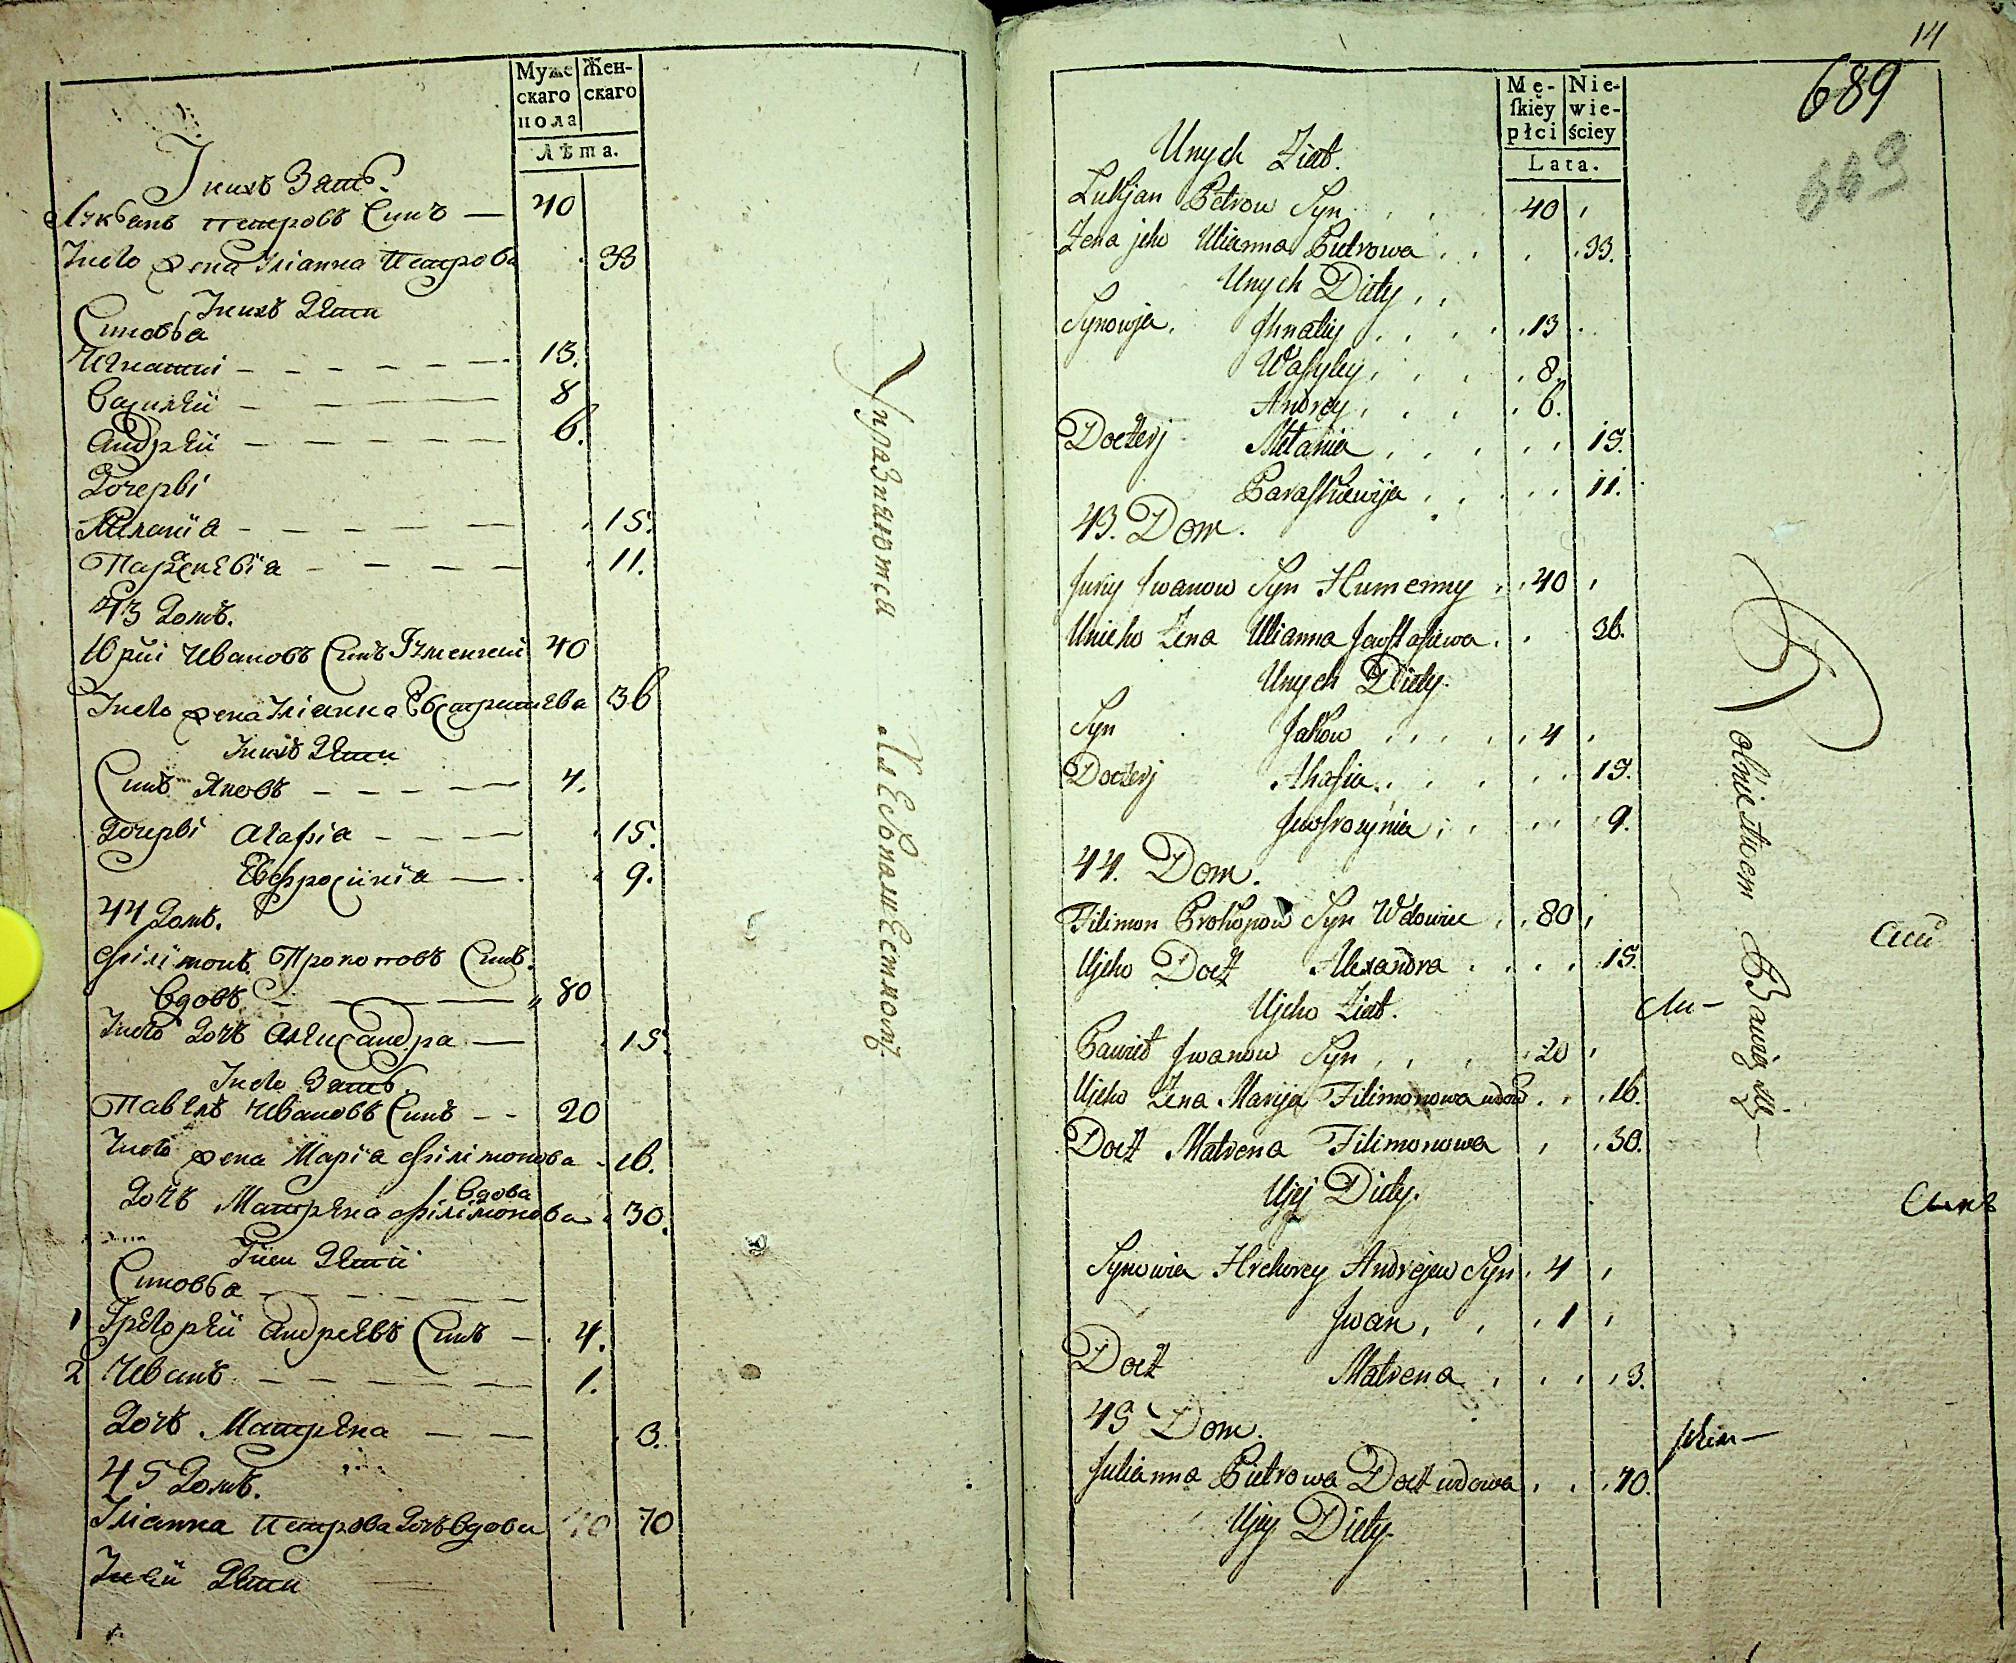 Муже
скаго
пола
Жен-
скаго
Лѣта.
У нихъ Зать.
Лукьянъ Петровъ Синъ — 40
У него жена Улїанна Петрова 33
У нихъ Дѣти
Синовья
Игнатиі — 13.
Василѣй — 8
Андрѣй — 6.
Дочерьі
Меланїа — 15.
Параскевїа — 11.
43 Домъ.
Юрїй Ивановъ Синъ Гуменний 40
У него жена Улїанна Евстратиева 36
У нихъ Дѣти
Синъ Яковъ — 4.
Дочерьі Агафїа — 15.
Евфросинїа — 9.
44 Домъ.
Филїмонъ Прокоповъ Синъ.
Вдовъ — 80
У него Дочь Александра — 15.
У него Зать.
Павелъ Ивановъ Синъ — 20
У него жена Марїа Филїмонова 16.
Вдова
Дочь Матрена Филїмонова 30.
У ней Дѣтй
Синовья
1 Грѣгорѣй Андреѣвъ Синъ — 4.
2 Иванъ — 1.
Дочь Матрѣна — 3.
45 Домъ.
Улїанна Петрова Дочь Вдова 70
У нѣй Дѣти
Упражняются
Хлебопашествомъ.
14
689
669
Mę-
ſkiéy
płci
Nie-
wie-
ściey
Lata.
Unych Ziat.
Lukjan Petrow Syn 40
Zena jeho Ulianna Pietrowa 33.
Unych Diety
Synowja. Jhnatiy 13
Wasyley 8.
Andrey 6.
Doczerj Melania 15.
Paraskiewija 11.
43. Dom.
Juriy Jwanow Syn Humenny 40
Unieho Zena Ulianna Jawstafiewa 36.
Unych Diety.
Syn Jakow 4
Doczerj Ahafia 15.
Jewfrozynia 9.
44. Dom.
Filimon Prokopow Syn Wdowiec 80
Ujeho Docz Alexandra 15.
Ujeho Ziat.
Paweł Jwanow Syn 20
Ujeho Zena Marija Filimonowa wdow 16.
Docz Matrena Filimonowa 30.
Ujej Diety.
Synowia Hrehorey Andrejew Syn 4
Jwan 1
Docz Matrena 3.
45 Dom.
Julianna Pietrowa Docz wdowa 70.
Ujey Diety.
Rolnictwem Bawią się